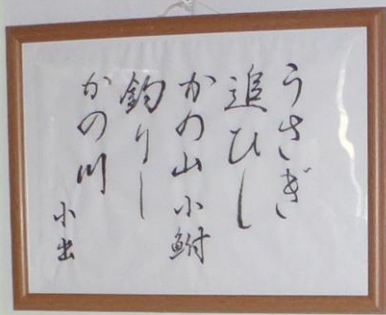 うさぎ
追ひし
かの山小鮒
釣りし
かの川
小出